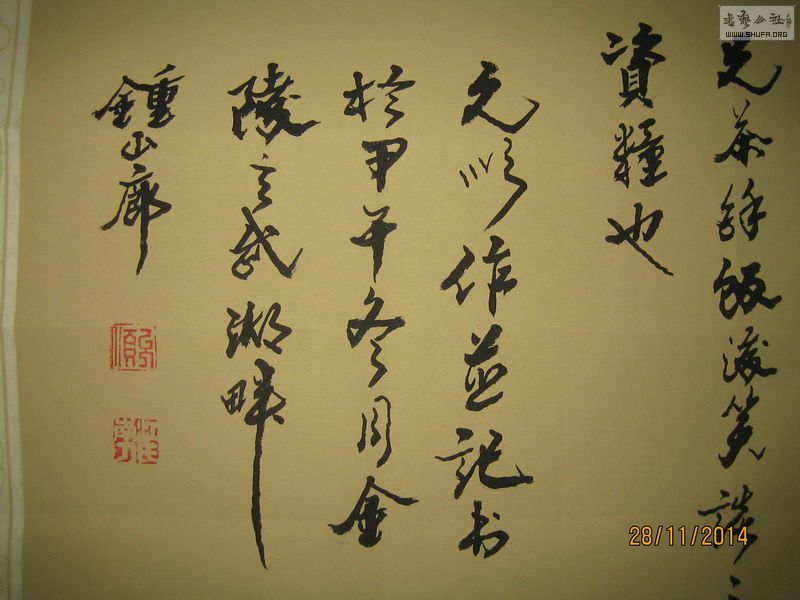 書藝公社
WWW.SHUFA.ORG
茶餘飯後笑談之
資糧也
作並記书
於甲午冬月金
陵玄武湖畔
鍾山廊
28/11/2014